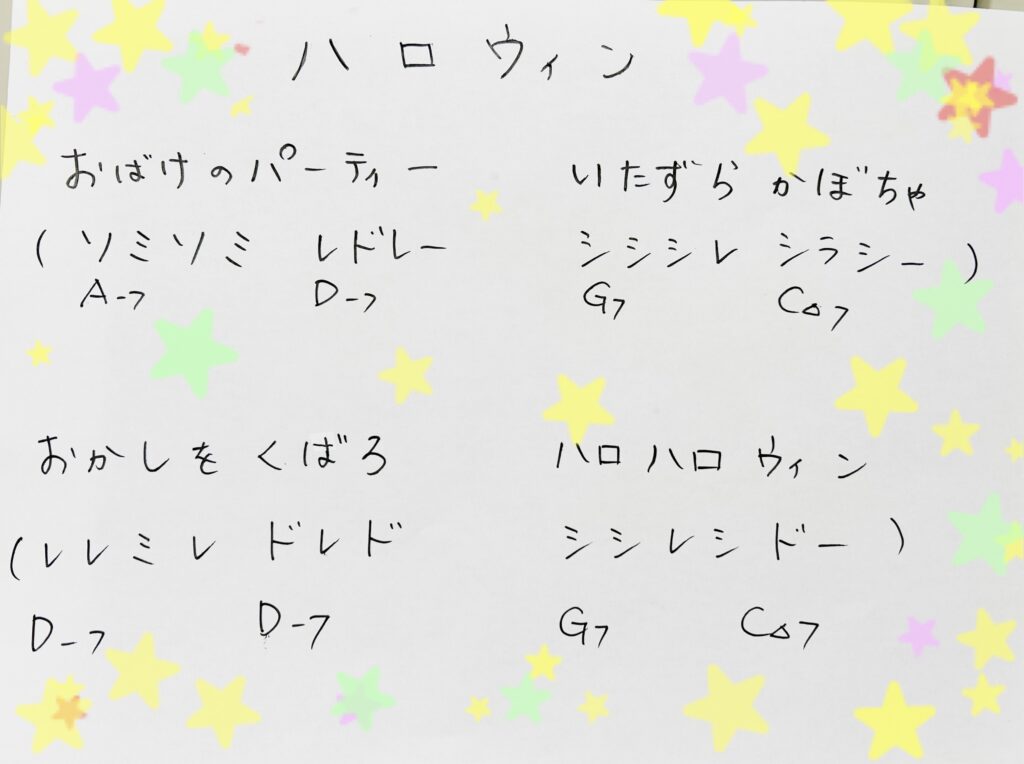 ハロウィン
おばけのパーティー いたずらかぼちゃ
(ソミソミ レドレー シシシレ シラシー)
A-7 D-7 G7 C△7
おかしをくばろ ハロハロウィン
(レレミレ ドレド シシレシドー)
D-7 D-7 G7 C△7